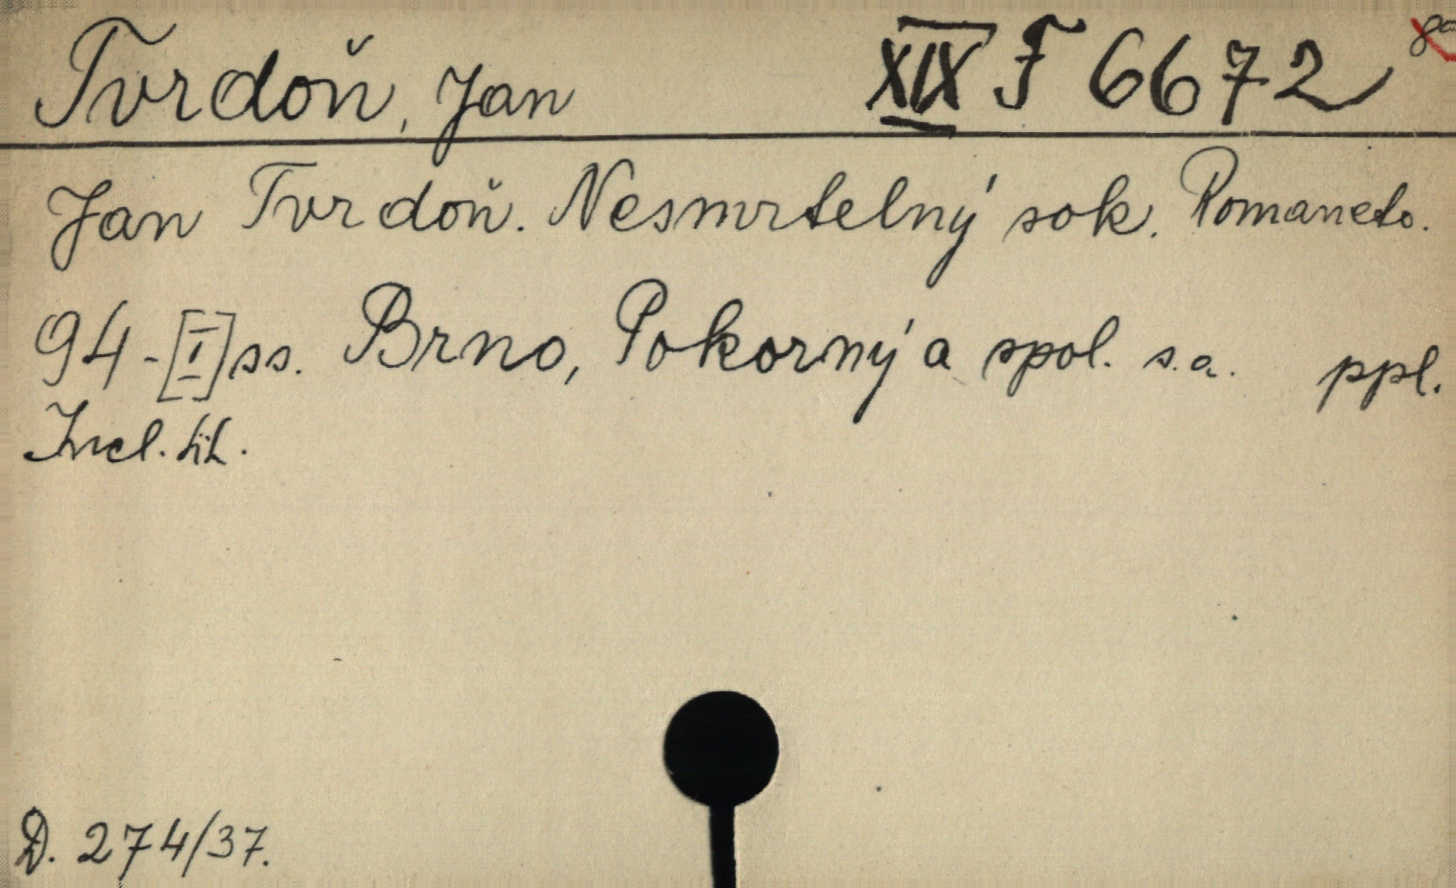 Tvrdoň, Jan XIX F 6672
Jan Tvrdoň. Nesmrtelný sok. Romaneto.
94-[I] ss. Brno, Pokorný a spol. s.a. ppl.
Incl. tit.
D. 274/37.